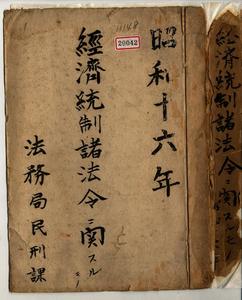 昭和十六年
11148
29042
經濟統制諸法令ニ関スルモノ
法務局民刑課
經濟統制諸法令ニ関スルモノ